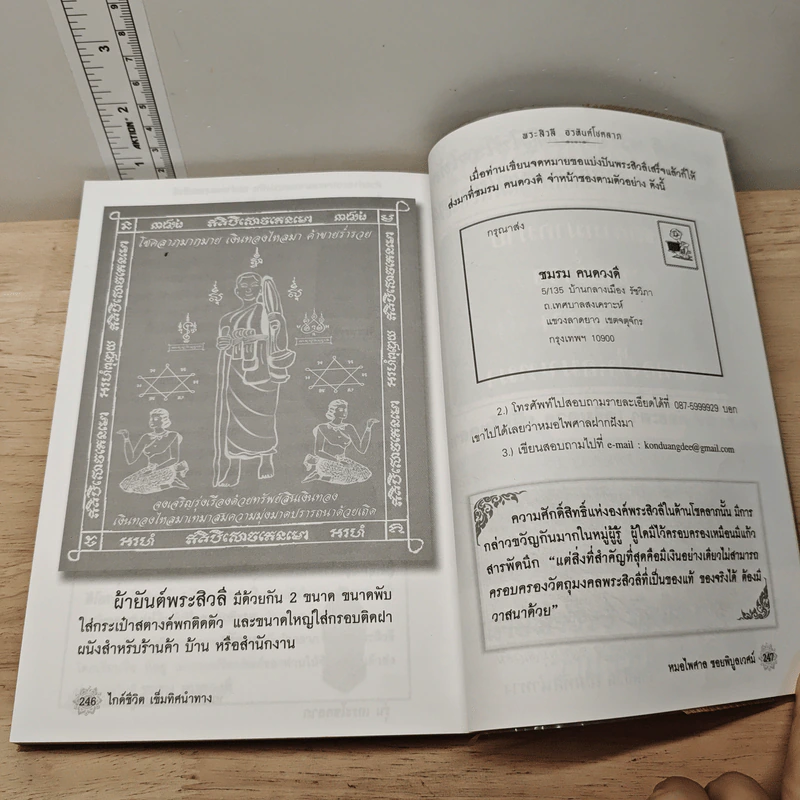 3
2
AKTION
โชคลาภมากมาย เงินทองไหลมา ค้าขายร่ำรวย
จงเจริญรุ่งเรืองด้วยทรัพย์สินเงินทอง
เงินทองไหลมาเทมาสมความมุ่งมาดปรารถนาด้วยเถิด
ผ้ายันต์พระสิวลี มีด้วยกัน 2 ขนาด ขนาดพับ
ใส่กระเป๋าสตางค์พกติดตัว และขนาดใหญ่ใส่กรอบติดฝา
ผนังสำหรับร้านค้า บ้าน หรือสำนักงาน
246 ไกด์ชีวิต เข็มทิศนำทาง
พระสิวลี อรหันต์โชคลาภ
เมื่อท่านเขียนจดหมายขอแบ่งปันพระสิวลีเสร็จแล้วก็ให้
ส่งมาที่ชมรม คนดวงดี จ่าหน้าซองตามตัวอย่าง ดังนี้
กรุณาส่ง
ชมรม คนดวงดี
5/135 บ้านกลางเมือง รัชวิภา
ถ.เทศบาลสงเคราะห์
แขวงลาดยาว เขตจตุจักร
กรุงเทพฯ 10900
2.) โทรศัพท์ไปสอบถามรายละเอียดได้ที่ 087-5999929 บอก
เขาไปได้เลยว่าหมอไพศาลฝากฝังมา
3.) เขียนสอบถามไปที่ e-mail : konduangdee@gmail.com
ความศักดิ์สิทธิ์แห่งองค์พระสิวลีในด้านโชคลาภนั้น มีการ
กล่าวขวัญกันมากในหมู่ผู้รู้ ผู้ใดมีไว้ครอบครองเหมือนมีแก้ว
สารพัดนึก “แต่สิ่งที่สำคัญที่สุดคือมีเงินอย่างเดียวไม่สามารถ
ครอบครองวัตถุมงคลพระสิวลีที่เป็นของแท้ ของจริงได้ ต้องมี
วาสนาด้วย”
หมอไพศาล ซอยพิบูลเวศม์ 247